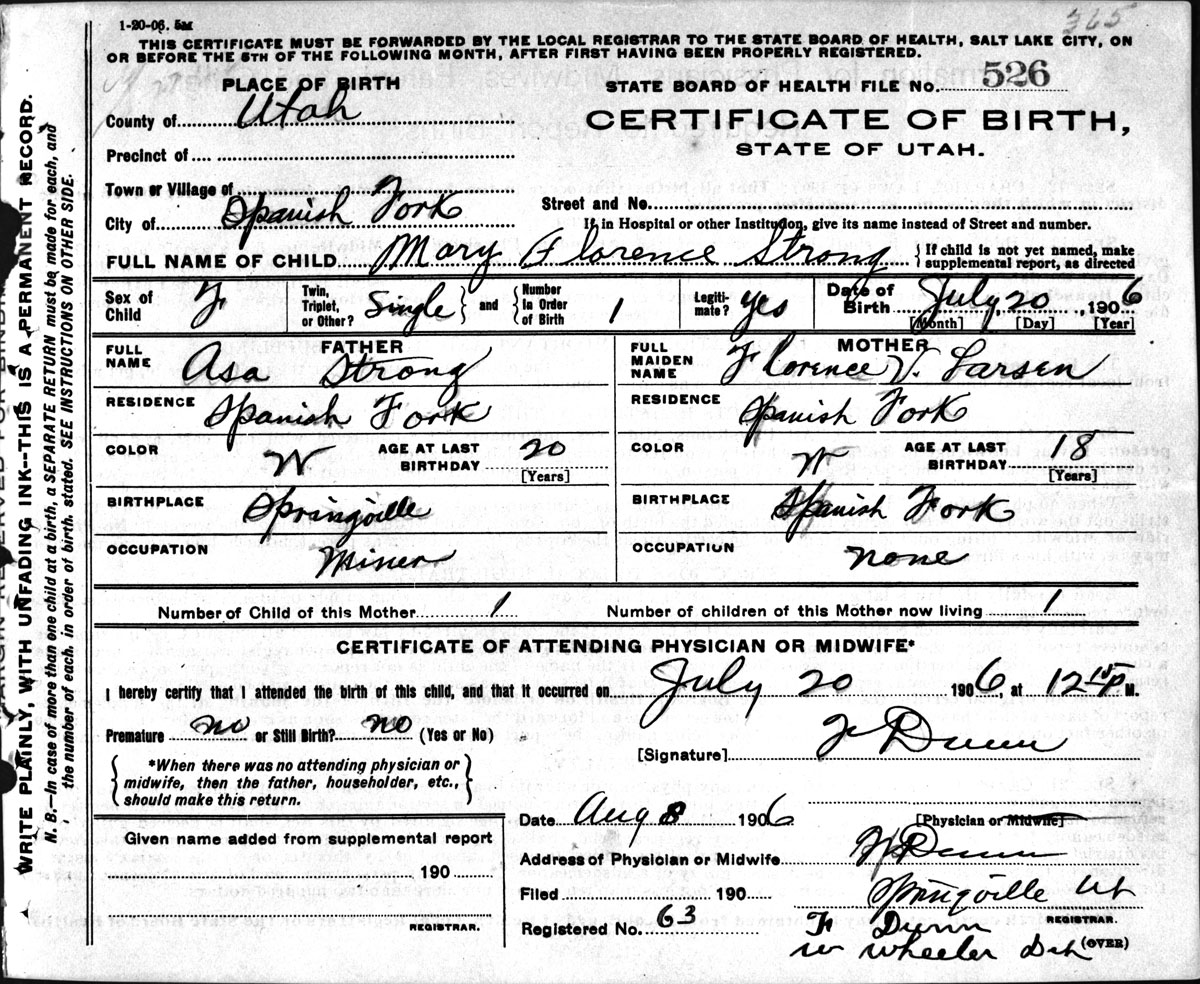 1-20-06. 5M
365
THIS CERTIFICATE MUST BE FORWARDED BY THE LOCAL REGISTRAR TO THE STATE BOARD OF HEALTH, SALT LAKE CITY, ON
OR BEFORE THE 5TH OF THE FOLLOWING MONTH, AFTER FIRST HAVING BEEN PROPERLY REGISTERED.
PLACE OF BIRTH
County of Utah
Precinct of
Town or Village of
City of Spanish Fork
STATE BOARD OF HEALTH FILE NO. 526
CERTIFICATE OF BIRTH,
STATE OF UTAH.
Street and No.
If in Hospital or other Institution, give its name instead of Street and number.
FULL NAME OF CHILD Mary Florence Strong { If child is not yet named, make
supplemental report, as directed
Sex of Child F
Twin, Triplet, or Other? Single } and { Number In Order of Birth 1
Legitimate? Yes
Date of Birth July, 20, 1906
[Month] [Day] [Year]
FATHER
FULL NAME Asa Strong
RESIDENCE Spanish Fork
COLOR W AGE AT LAST BIRTHDAY 20
[Years]
BIRTHPLACE Springville
OCCUPATION Miner
MOTHER
FULL MAIDEN NAME Florence V. Larsen
RESIDENCE Spanish Fork
COLOR W AGE AT LAST BIRTHDAY 18
[Years]
BIRTHPLACE Spanish Fork
OCCUPATION none
Number of Child of this Mother 1 Number of children of this Mother now living 1
CERTIFICATE OF ATTENDING PHYSICIAN OR MIDWIFE*
I hereby certify that I attended the birth of this child, and that it occurred on July 20 1906, at 12 15 P. M.
Premature no or Still Birth? no (Yes or No)
*When there was no attending physician or
midwife, then the father, householder, etc.,
should make this return.
[Signature] F Dunn
Date Aug 8 1906 [Physician or Midwife]
Address of Physician or Midwife F Dunn
Filed 190 Springville Ut
REGISTRAR.
Registered No. 63 F Dunn
W Wheeler Deh (OVER)
Given name added from supplemental report
190
REGISTRAR.
WRITE PLAINLY, WITH UNFADING INK--THIS IS A PERMANENT RECORD.
N. B.--In case of more than one child at a birth, a SEPARATE RETURN must be made for each, and
the number of each, in order of birth, stated. SEE INSTRUCTIONS ON OTHER SIDE.